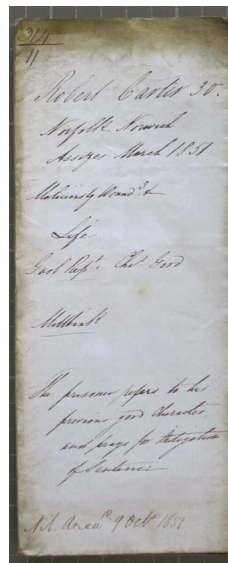 314
11
Robert Carter 30.
Norfolk. Norwich
Assizes March 1851
Maliciously Wound.g &
Life
Gaol Rep.t Char. Good
Millbank
The prisoner refers to his
previous good character,
and prays for Mitigation
of Sentence.
Nil. 9 Oct 1851